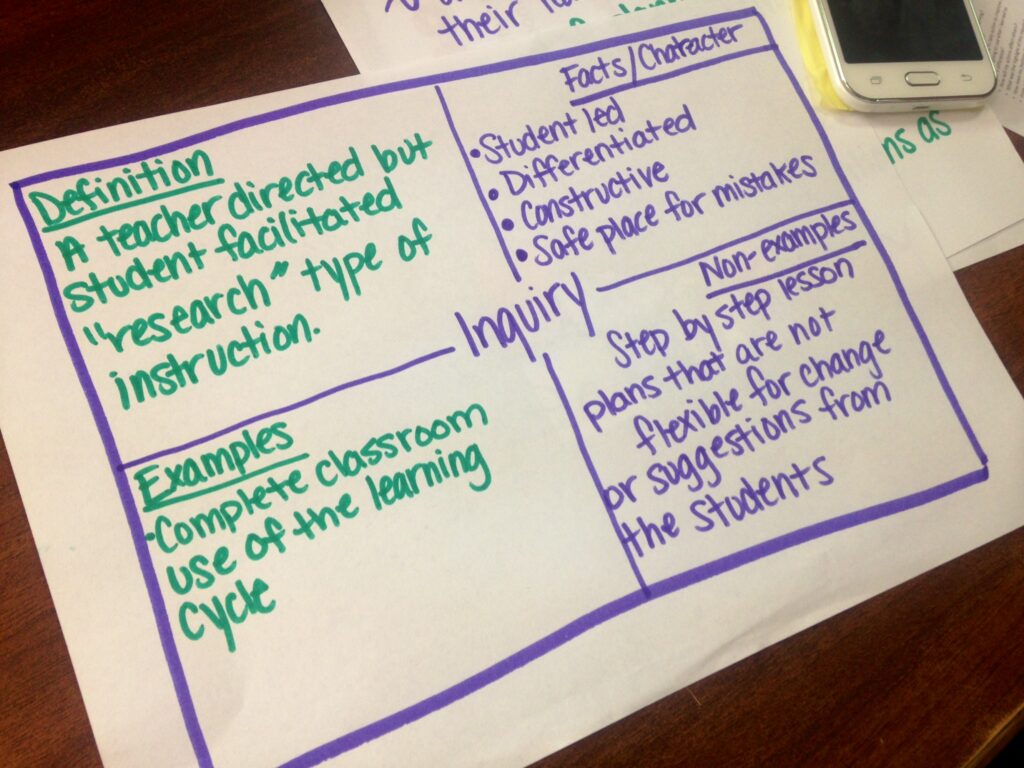 their
ns as
Definition
A teacher directed but
student facilitated
"research" type of
instruction.
Facts/Character
•Student led
•Differentiated
•Constructive
•Safe place for mistakes
Inquiry
Examples
•Complete classroom
use of the learning
cycle
Non-examples
Step by step lesson
plans that are not
flexible for change
or suggestions from
the students